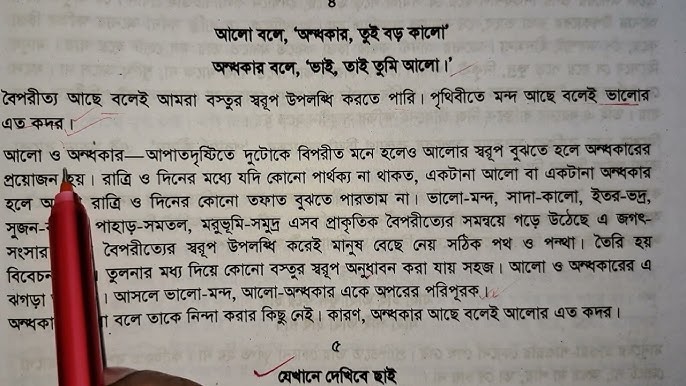 ৪
আলো বলে, ‘অন্ধকার, তুই বড় কালো’
অন্ধকার বলে, ‘ভাই, তাই তুমি আলো।’
বৈপরীত্য আছে বলেই আমরা বস্তুর স্বরূপ উপলব্ধি করতে পারি। পৃথিবীতে মন্দ আছে বলেই ভালোর
এত কদর।
আলো ও অন্ধকার—আপাতদৃষ্টিতে দুটোকে বিপরীত মনে হলেও আলোর স্বরূপ বুঝতে হলে অন্ধকারের
প্রয়োজন হয়। রাত্রি ও দিনের মধ্যে যদি কোনো পার্থক্য না থাকত, একটানা আলো বা একটানা অন্ধকার
হলে রাত্রি ও দিনের কোনো তফাত বুঝতে পারতাম না। ভালো-মন্দ, সাদা-কালো, ইতর-ভদ্র,
সুজন- পাহাড়-সমতল, মরুভূমি-সমুদ্র এসব প্রাকৃতিক বৈপরীত্যের সমন্বয়ে গড়ে উঠেছে এ জগৎ-
সংসার বৈপরীত্যের স্বরূপ উপলব্ধি করেই মানুষ বেছে নেয় সঠিক পথ ও পন্থা। তৈরি হয়
বিবেচন তুলনার মধ্য দিয়ে কোনো বস্তুর স্বরূপ অনুধাবন করা যায় সহজে। আলো ও অন্ধকারের এ
ঝগড়া । আসলে ভালো-মন্দ, আলো-অন্ধকার একে অপরের পরিপূরক।
অন্ধকা বলে তাকে নিন্দা করার কিছু নেই। কারণ, অন্ধকার আছে বলেই আলোর এত কদর।
৫
যেখানে দেখিবে ছাই